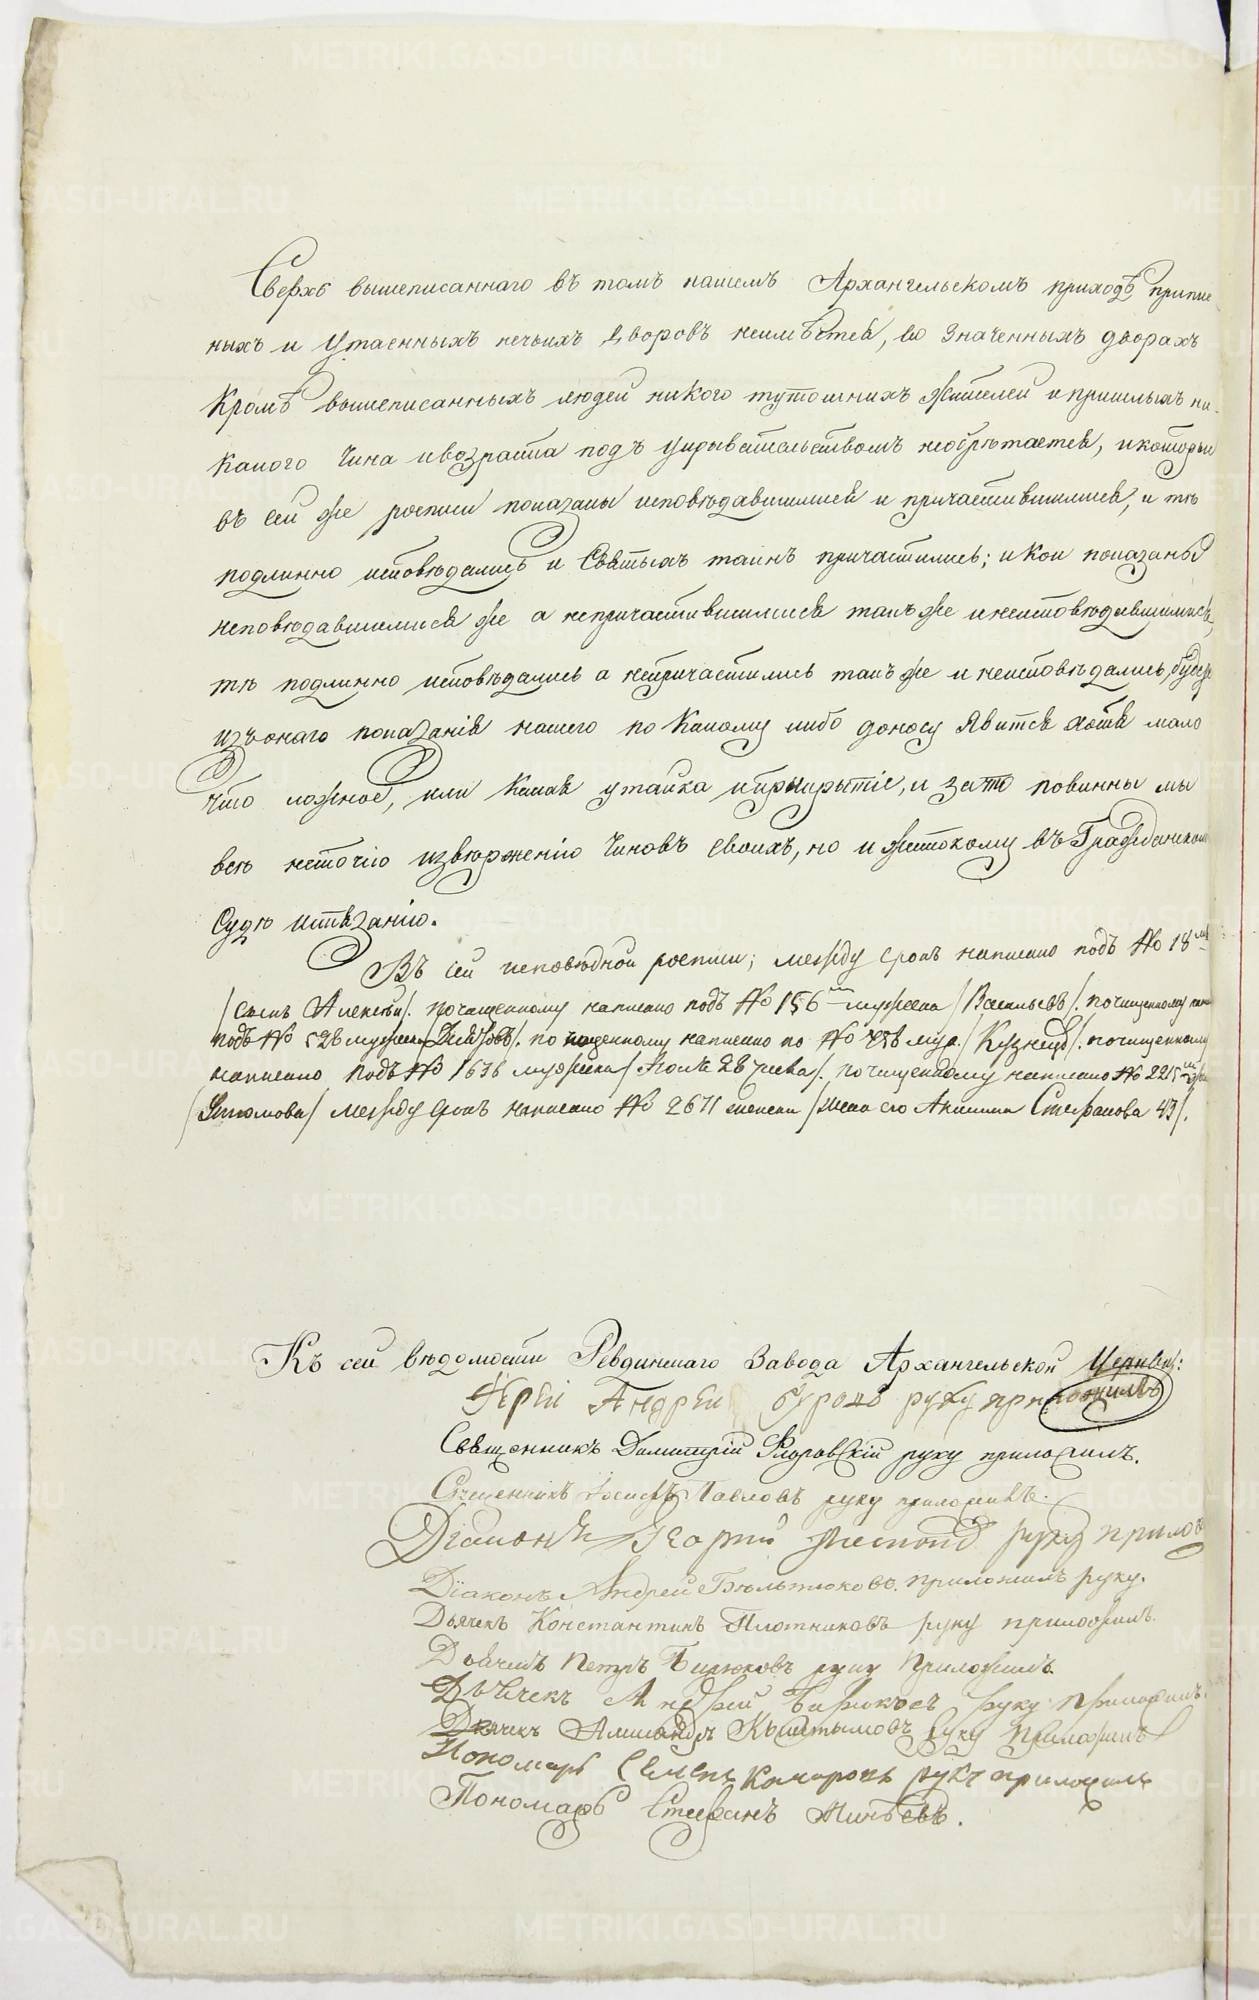 Сверхъ вышеписаннаго въ томъ нашемъ Архангельскомъ приходѣ, припис-
ныхъ и утаенныхъ нечьихъ дворовъ неимѣется, во значенныхъ дворахъ
Кромѣ вышеписанныхъ людей никого тутошнихъ жителей и пришлыхъ ни-
какого чина и возраста подъ укрывательствомъ необрѣтается, и которыи
въ сей же росписи показаны исповѣдавшимися и причастившимися, и тѣ
подлинно исповѣдались и Святыхъ таинъ причастились; и кои показаны
неповѣдавшимися же а непричастившимися такъ же и неисповѣдавшимись,
тѣ подлинно исповѣдались а непричастились такъ же и неисповѣдались, буде
изъ онаго показанія нашего по какому либо доносу явится хотя мало
что ложное, или какая утайка и прикрытіе, и за то повинны мы
всѣ неточію изверженію Чиновъ своихъ, но и жестокому въ Гражданскомъ
Судѣ истязанію.
Въ сей исповѣдной росписи; между строкъ написано подъ № 18
/сынъ Алексѣй/. почищенному написано подъ № 156 мужеска /Васильевъ/. почищенному
подъ № 528 мужеска по чищенному написано по № муж. /Кузнецъ/. почищенному
написано подъ № 1636 мужеска почищенному написано № 2215
/Уткомова/ между строкъ написано № 2671 женска /жена его Акилина Стефанова 43/.
Къ сей вѣдомости Ревдинскаго Завода Архангельской Церкви:
Іерей Андрей Буровъ руку приложилъ
Священникъ Димитрій Флоровскій руку приложилъ.
Священникъ Іосифъ Павловъ руку приложилъ.
Діаконъ руку прилож
Діаконъ Андрей приложилъ руку.
Дьячекъ Константинъ Плотниковъ руку приложилъ.
Дьячекъ Петръ Бирюковъ руку приложилъ
Дьячекъ Андрей Бирюковъ руку приложилъ.
Дьячекъ Александръ Кыштымовъ руку приложилъ
Пономарь Семенъ Комаровъ руку приложилъ
Пономарь Стефанъ Минѣевъ.
METRIKI.GASO-URAL.RU